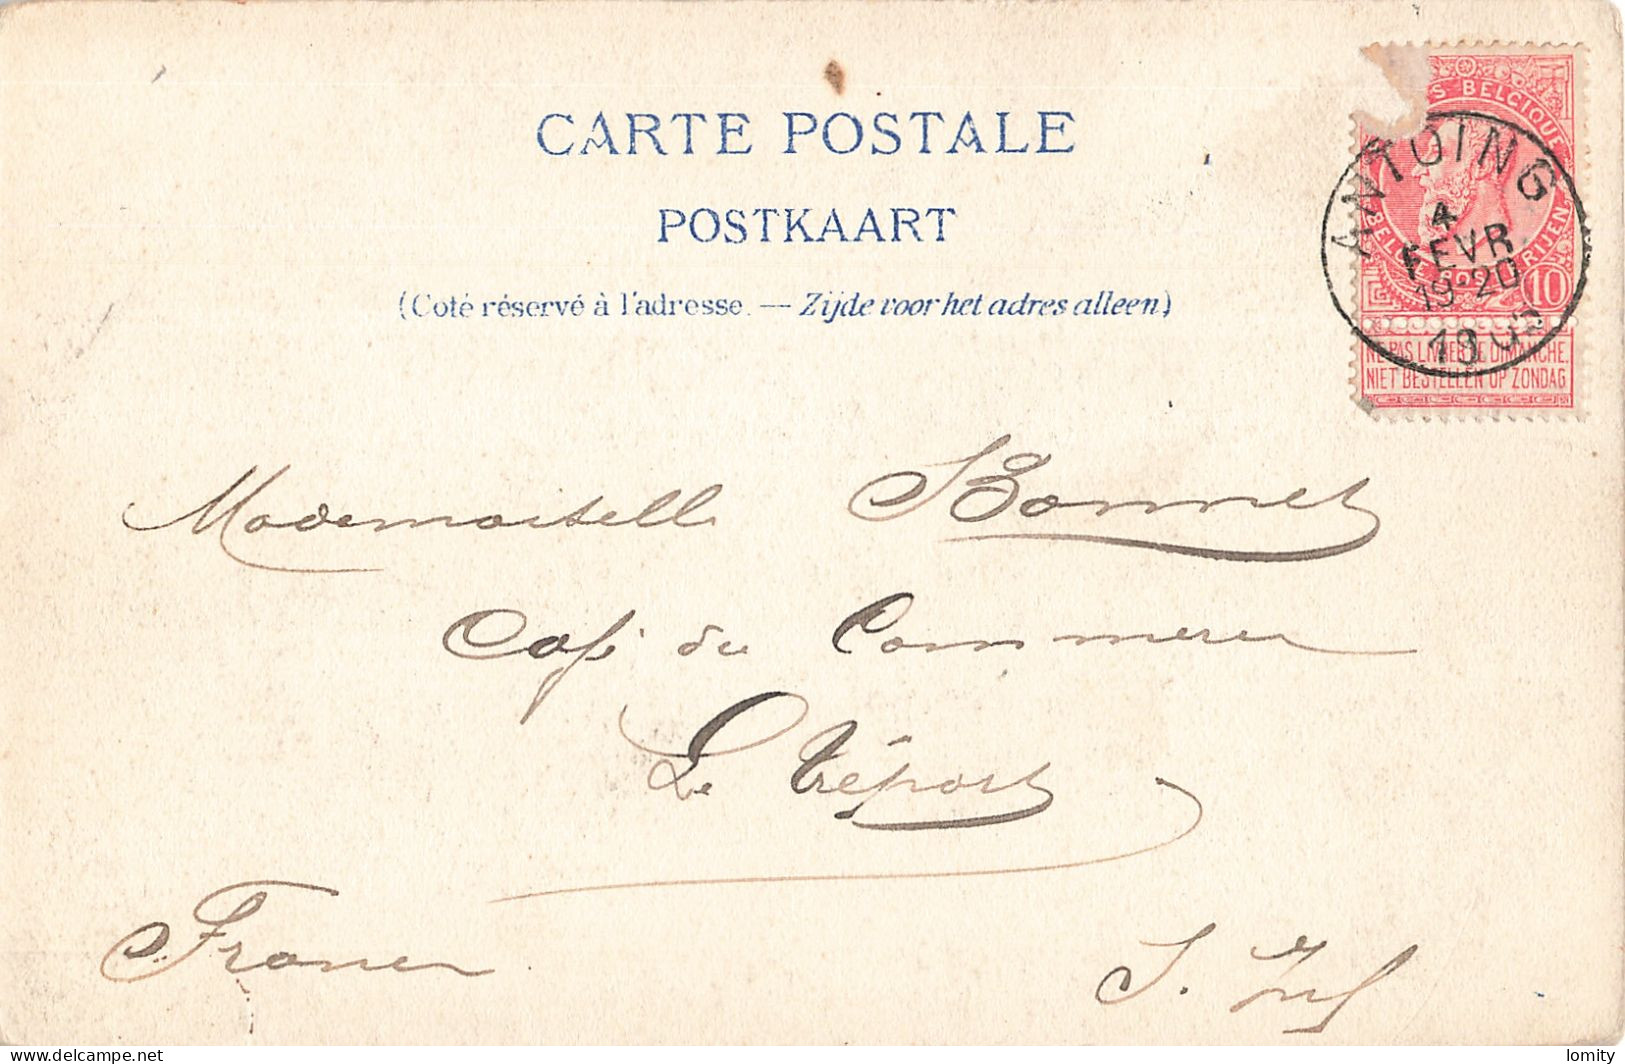 CARTE POSTALE
POSTKAART
(Coté réservé à l'adresse. — Zijde voor het adres alleen)
S BELGIQUE
BELGIE POSTERIJEN
10
NE PAS LIVRER LE DIMANCHE.
NIET BESTELLEN OP ZONDAG
ANTOING
4
FEVR
19-20
190
Mademoiselle Bonnet
Café du Commerce
Le Tréport
France
S.
delcampe.net
lomity